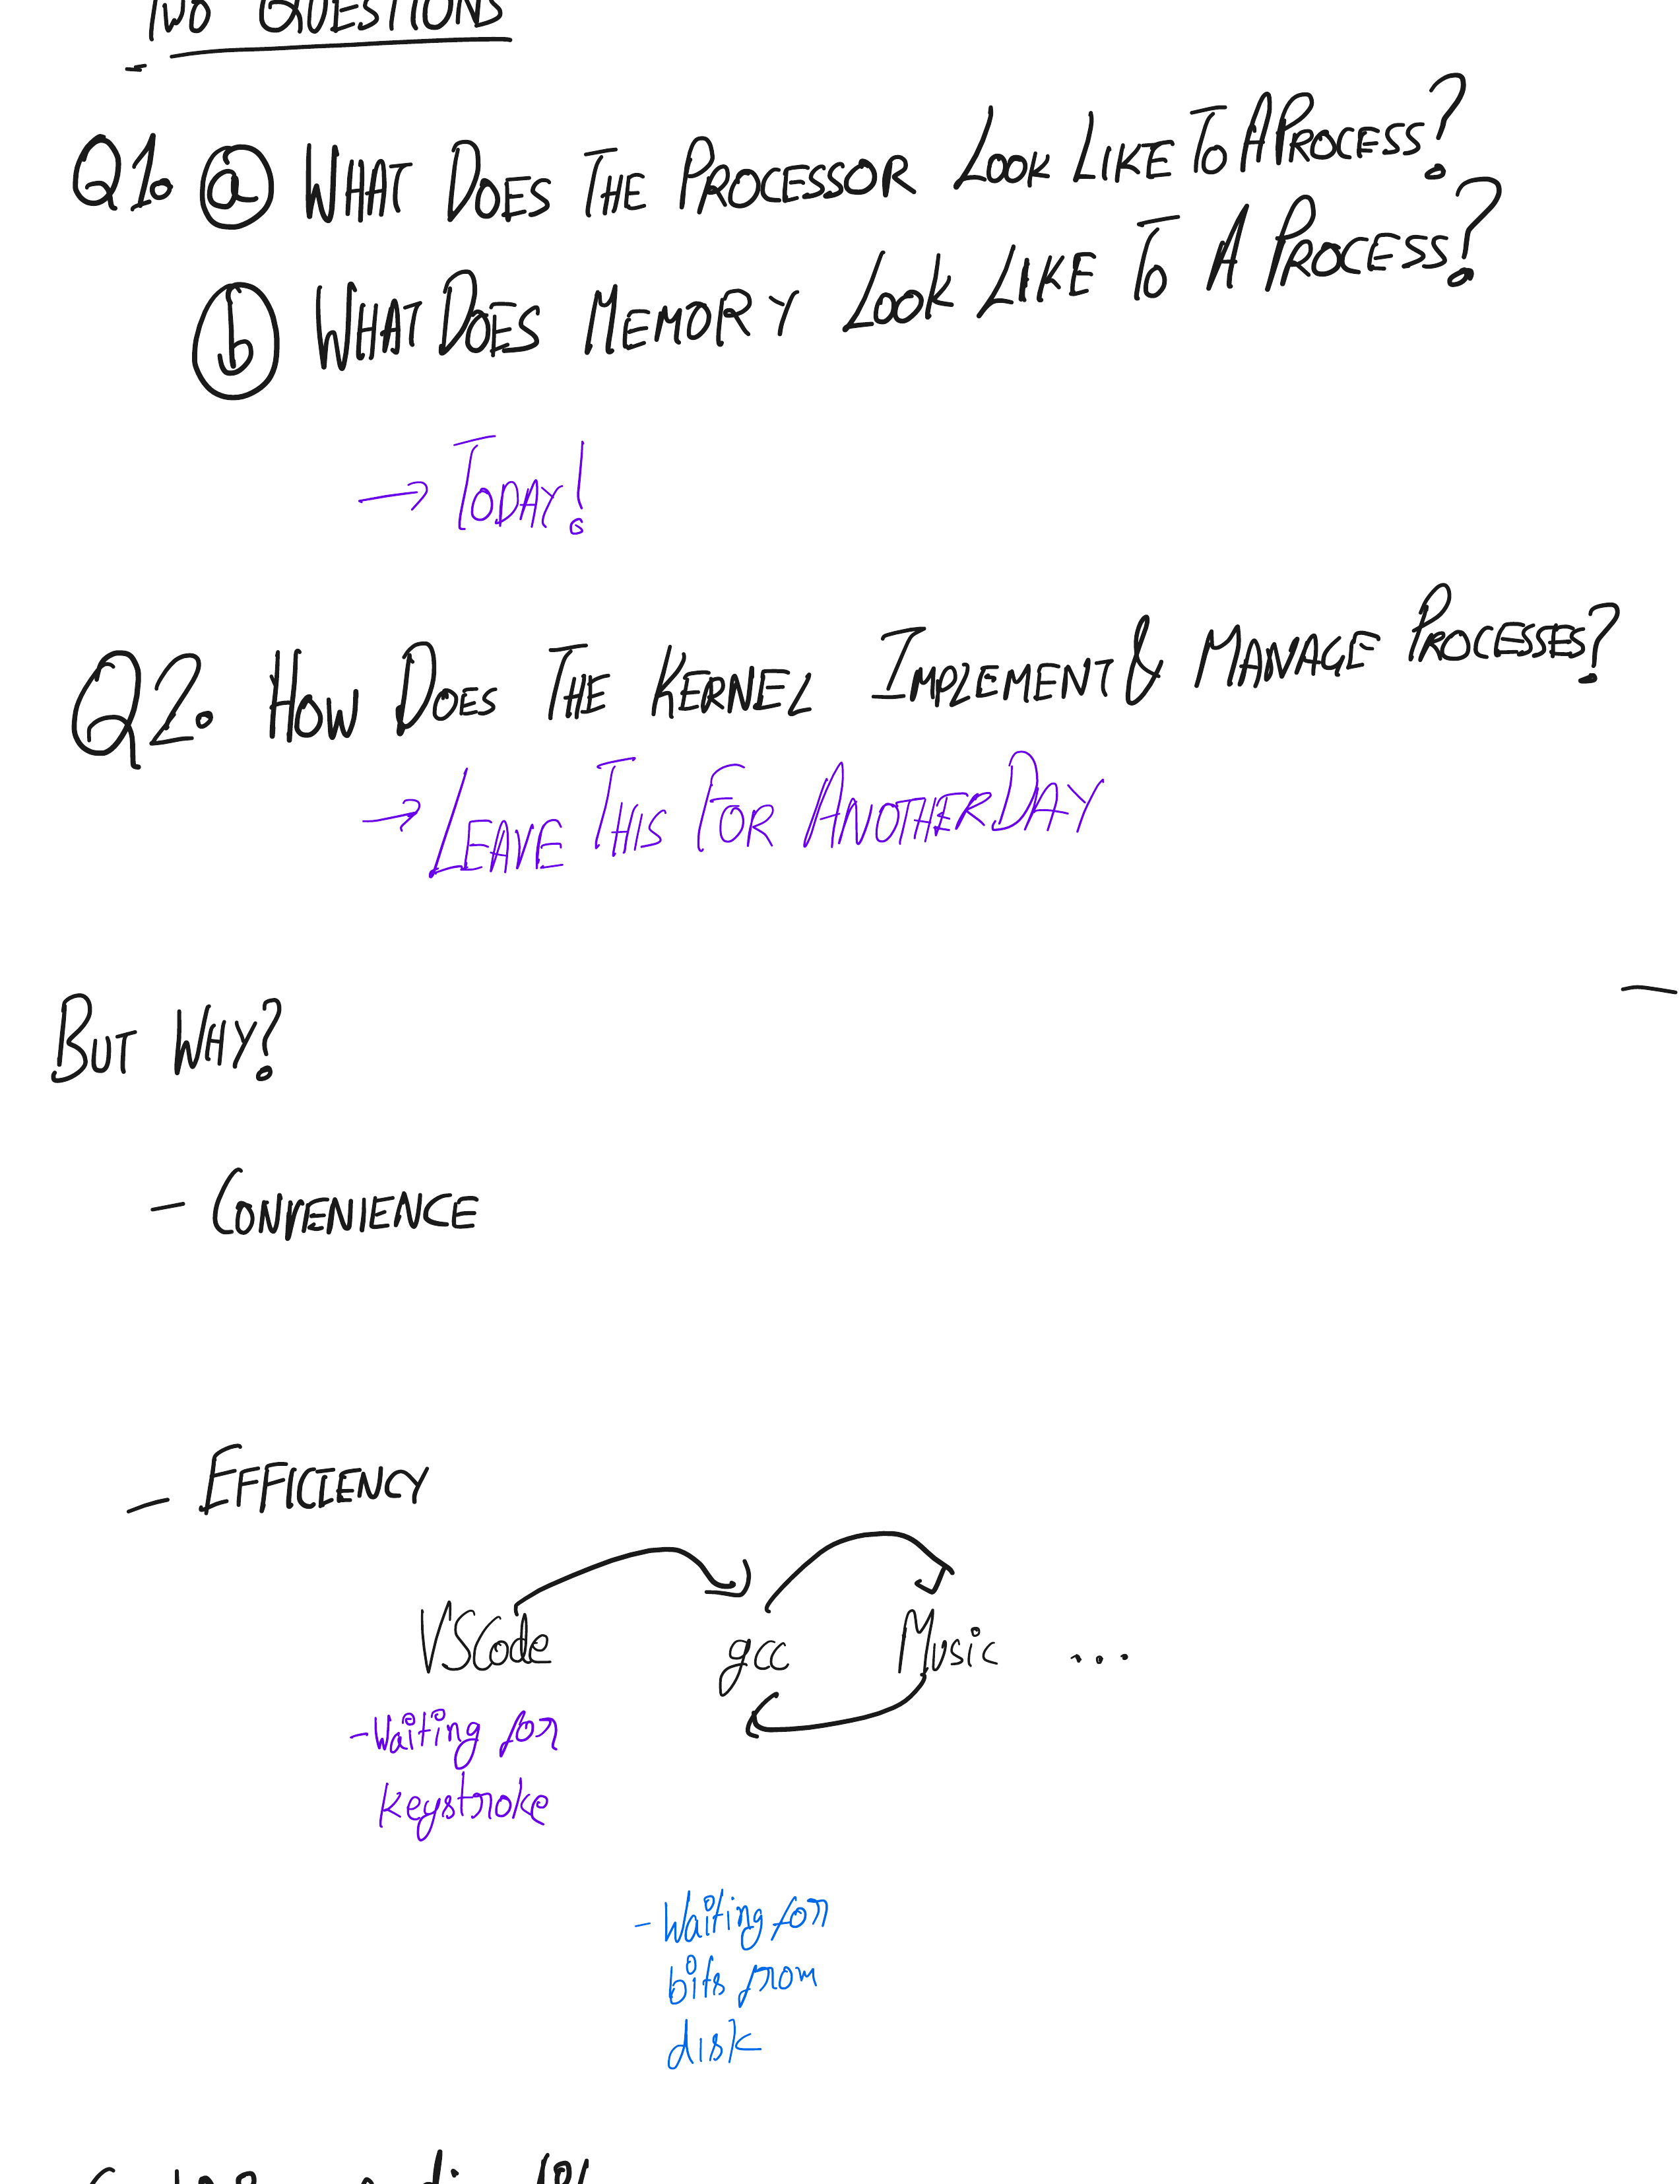 TWO QUESTIONS
Q1. ⓐ WHAT DOES THE PROCESSOR LOOK LIKE TO A PROCESS?
ⓑ WHAT DOES MEMORY LOOK LIKE TO A PROCESS?
→ TODAY!
Q2. HOW DOES THE KERNEL IMPLEMENT & MANAGE PROCESSES?
→ LEAVE THIS FOR ANOTHER DAY
BUT WHY?
- CONVENIENCE
- EFFICIENCY
VSCode gcc Music ...
- Waiting for
keystroke
- Waiting for
bits from
disk